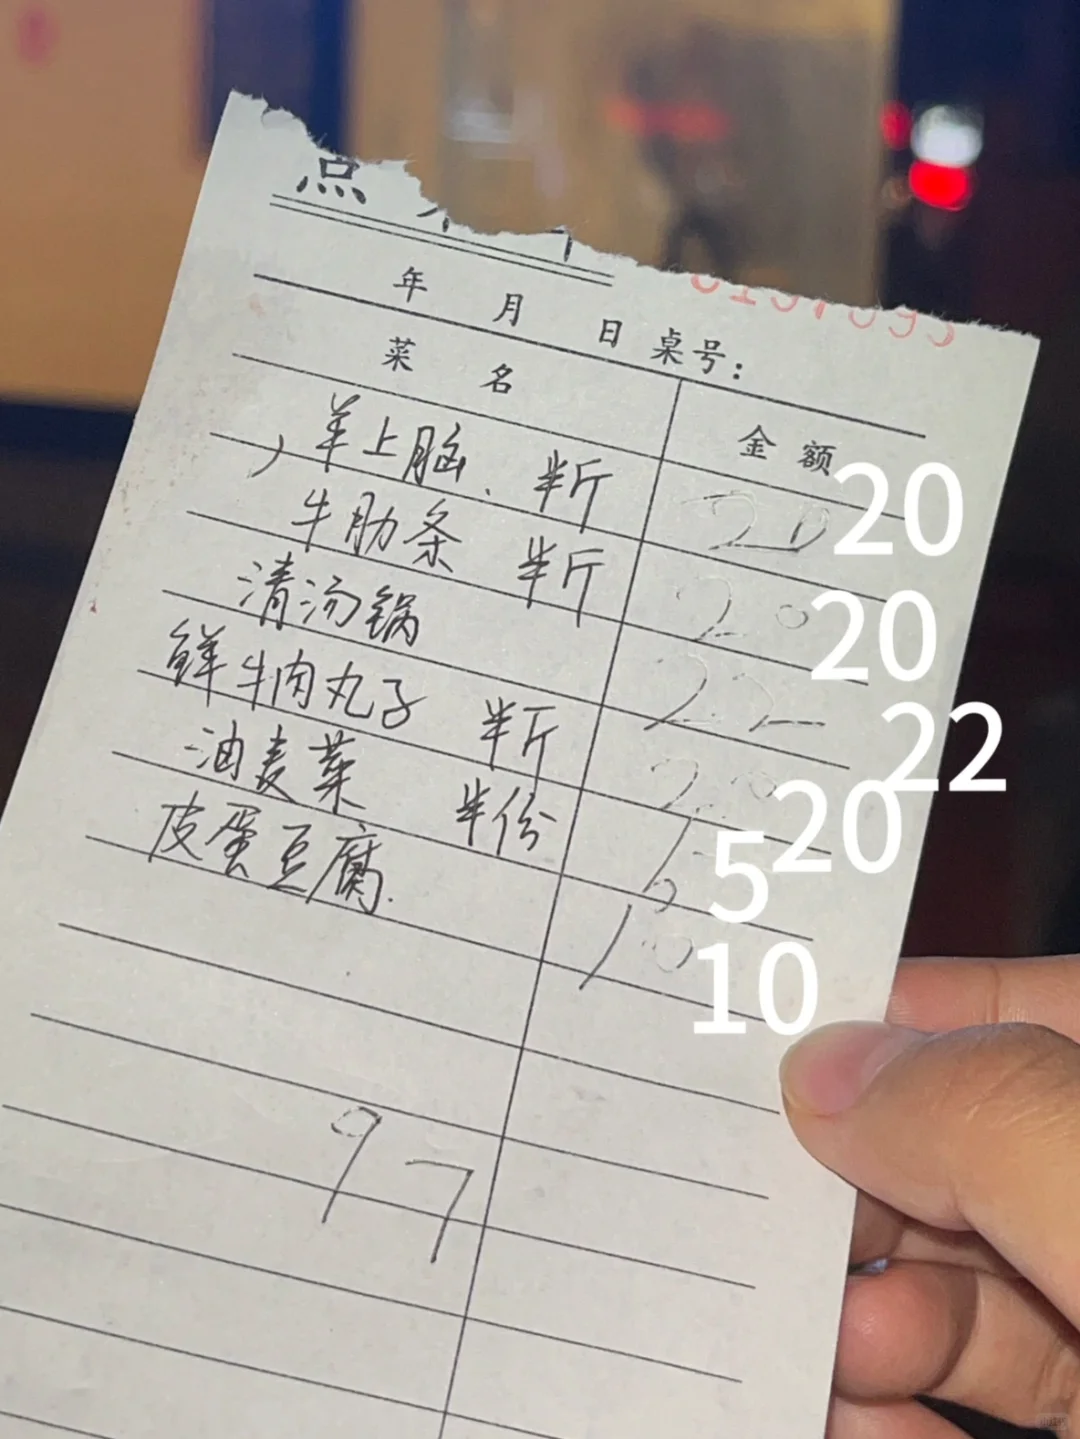 点
年 月 日 桌号:
菜 名 金 额
羊上脑. 半斤 20 20
牛肋条 半斤 20 20
清汤锅 22 22
鲜牛肉丸子 半斤 20 20
油麦菜 半份 5 5
皮蛋豆腐. 10 10
97